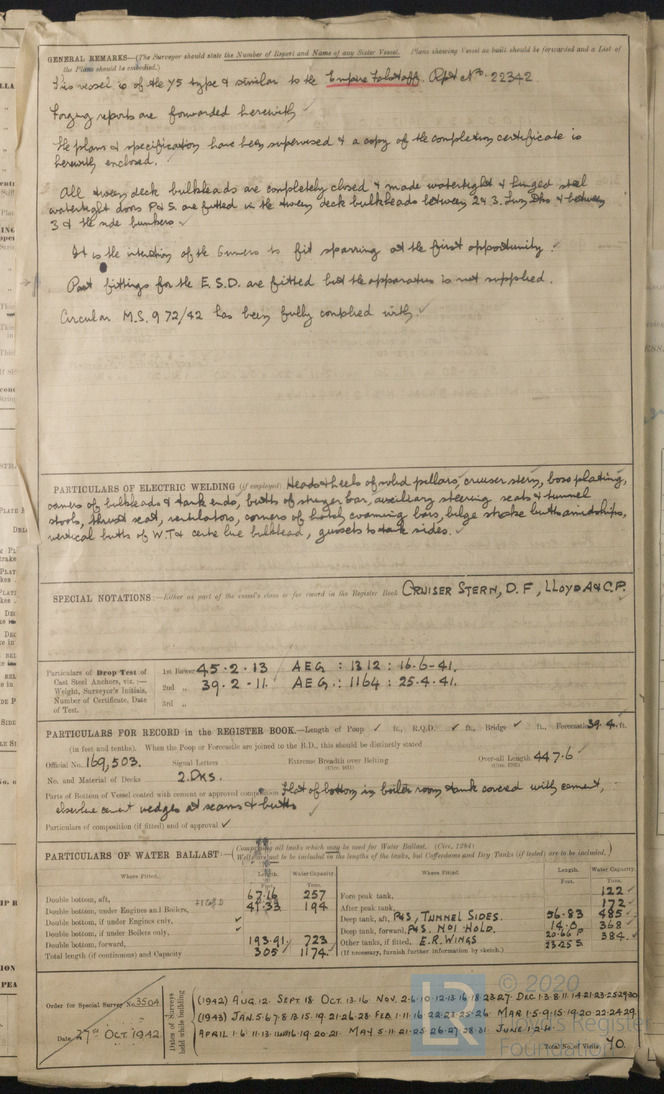 GENERAL REMARKS—(The Surveyor should state the Number of Report and Name of any Sister Vessel. Plans showing Vessel as built should be forwarded and a List of
the Plans should be embodied.)
This vessel is of the Y5 type & similar to the Empire Falstaff. Rpt No. 22342
Forging reports are forwarded herewith ✓
The plans & specification have been supervised & a copy of the completion certificate is
herewith enclosed. ✓
All tween deck bulkheads are completely closed & made watertight & hinged steel
watertight doors P & S. are fitted in the tween deck bulkheads between 2 & 3 Dks & between
3 & the side bunkers. ✓
It is the intention of the Owners to fit sparring at the first opportunity. ✓
Part fittings for the E.S.D. are fitted but the apparatus is not supplied.
Circular M.S. 972/42 has been fully complied with. ✓
PARTICULARS OF ELECTRIC WELDING (if employed) Heads & heels of solid pillars, cruiser stern, boss plating,
corners of bulkheads & tank ends, butts of stringer bar, auxiliary steering seats & tunnel
stools, thrust seat, ventilators, corners of hatch coaming bars, bilge strake butts amidships,
vertical butts of W.T. & centre line bulkhead, gussets to tank sides. ✓
SPECIAL NOTATIONS:—Either as part of the vessel's class or for record in the Register Book CRUISER STERN, D.F, LLOYD A & C.P.
Particulars of Drop Test of
Cast Steel Anchors, viz.:—
Weight, Surveyor's Initials,
Number of Certificate, Date
of Test.
1st Bower 45·2·13 AEG : 1312 : 16-6-41.
2nd „ 39·2·11. AEG.: 1164 : 25·4·41.
3rd „
PARTICULARS FOR RECORD in the REGISTER BOOK.—Length of Poop ✓ ft., R.Q.D. ✓ ft., Bridge ✓ ft., Forecastle 39·4 ft.
(in feet and tenths). When the Poop or Forecastle are joined to the B.D., this should be distinctly stated
Official No. 169,503. Signal Letters Extreme Breadth over Belting Over-all Length 447·6 ✓
No. and Material of Decks 2.DKS.
Parts of Bottom of Vessel coated with cement or approved composition Flat of bottom in boiler room & tank covered with cement,
elsewhere cement wedges at seams & butts ✓
Particulars of composition (if fitted) and of approval ✓
PARTICULARS OF WATER BALLAST:—(Comprising all tanks which may be used for Water Ballast. (Circ. 1284)
Wells are not to be included in the lengths of the tanks, but Cofferdams and Dry Tanks (if tested) are to be included.)
Where Fitted. Length. Water Capacity. Where Fitted. Length. Water Capacity.
Tons. Feet. Tons.
Double bottom, aft, 67·16 257 Fore peak tank, 122 ✓
Double bottom, under Engines and Boilers, 41·33 194 After peak tank, 172 ✓
Double bottom, if under Engines only, ✓ Deep tank, aft, P&S, TUNNEL SIDES. 56·83 485 ✓
Double bottom, if under Boilers only, ✓ Deep tank, forward, P&S. NO1 HOLD. 14·0 368 ✓
Double bottom, forward, 193·91 723 Other tanks, if fitted, E.R. WINGS 20·66 P 384 ✓
23·25 S
Total length (if continuous) and Capacity 305 1174 (If necessary, furnish further information by sketch.)
Order for Special Survey No. 3504
Date 27th OCT. 1942
Dates of Surveys
held while building
(1942) AUG. 12. SEPT. 18 OCT. 13·16 NOV. 2·6·10·12·13·16·18·23·27· DEC 1·3·8·11·14·21·23·25·29·30
(1943) JAN. 5·6·7·8·13·15·19·21·26·28· FEB 1·11·16·22·23·25·26· MAR 1·5·9·15·19·20·22·24·29.
APRIL 1·6·11·13· 16·19·20·21· MAY 5·11·21·25·26·27·28·31 JUNE 1·2·4·
Total No. of Visits 70.
© 2020
Lloyd's Register
Foundation